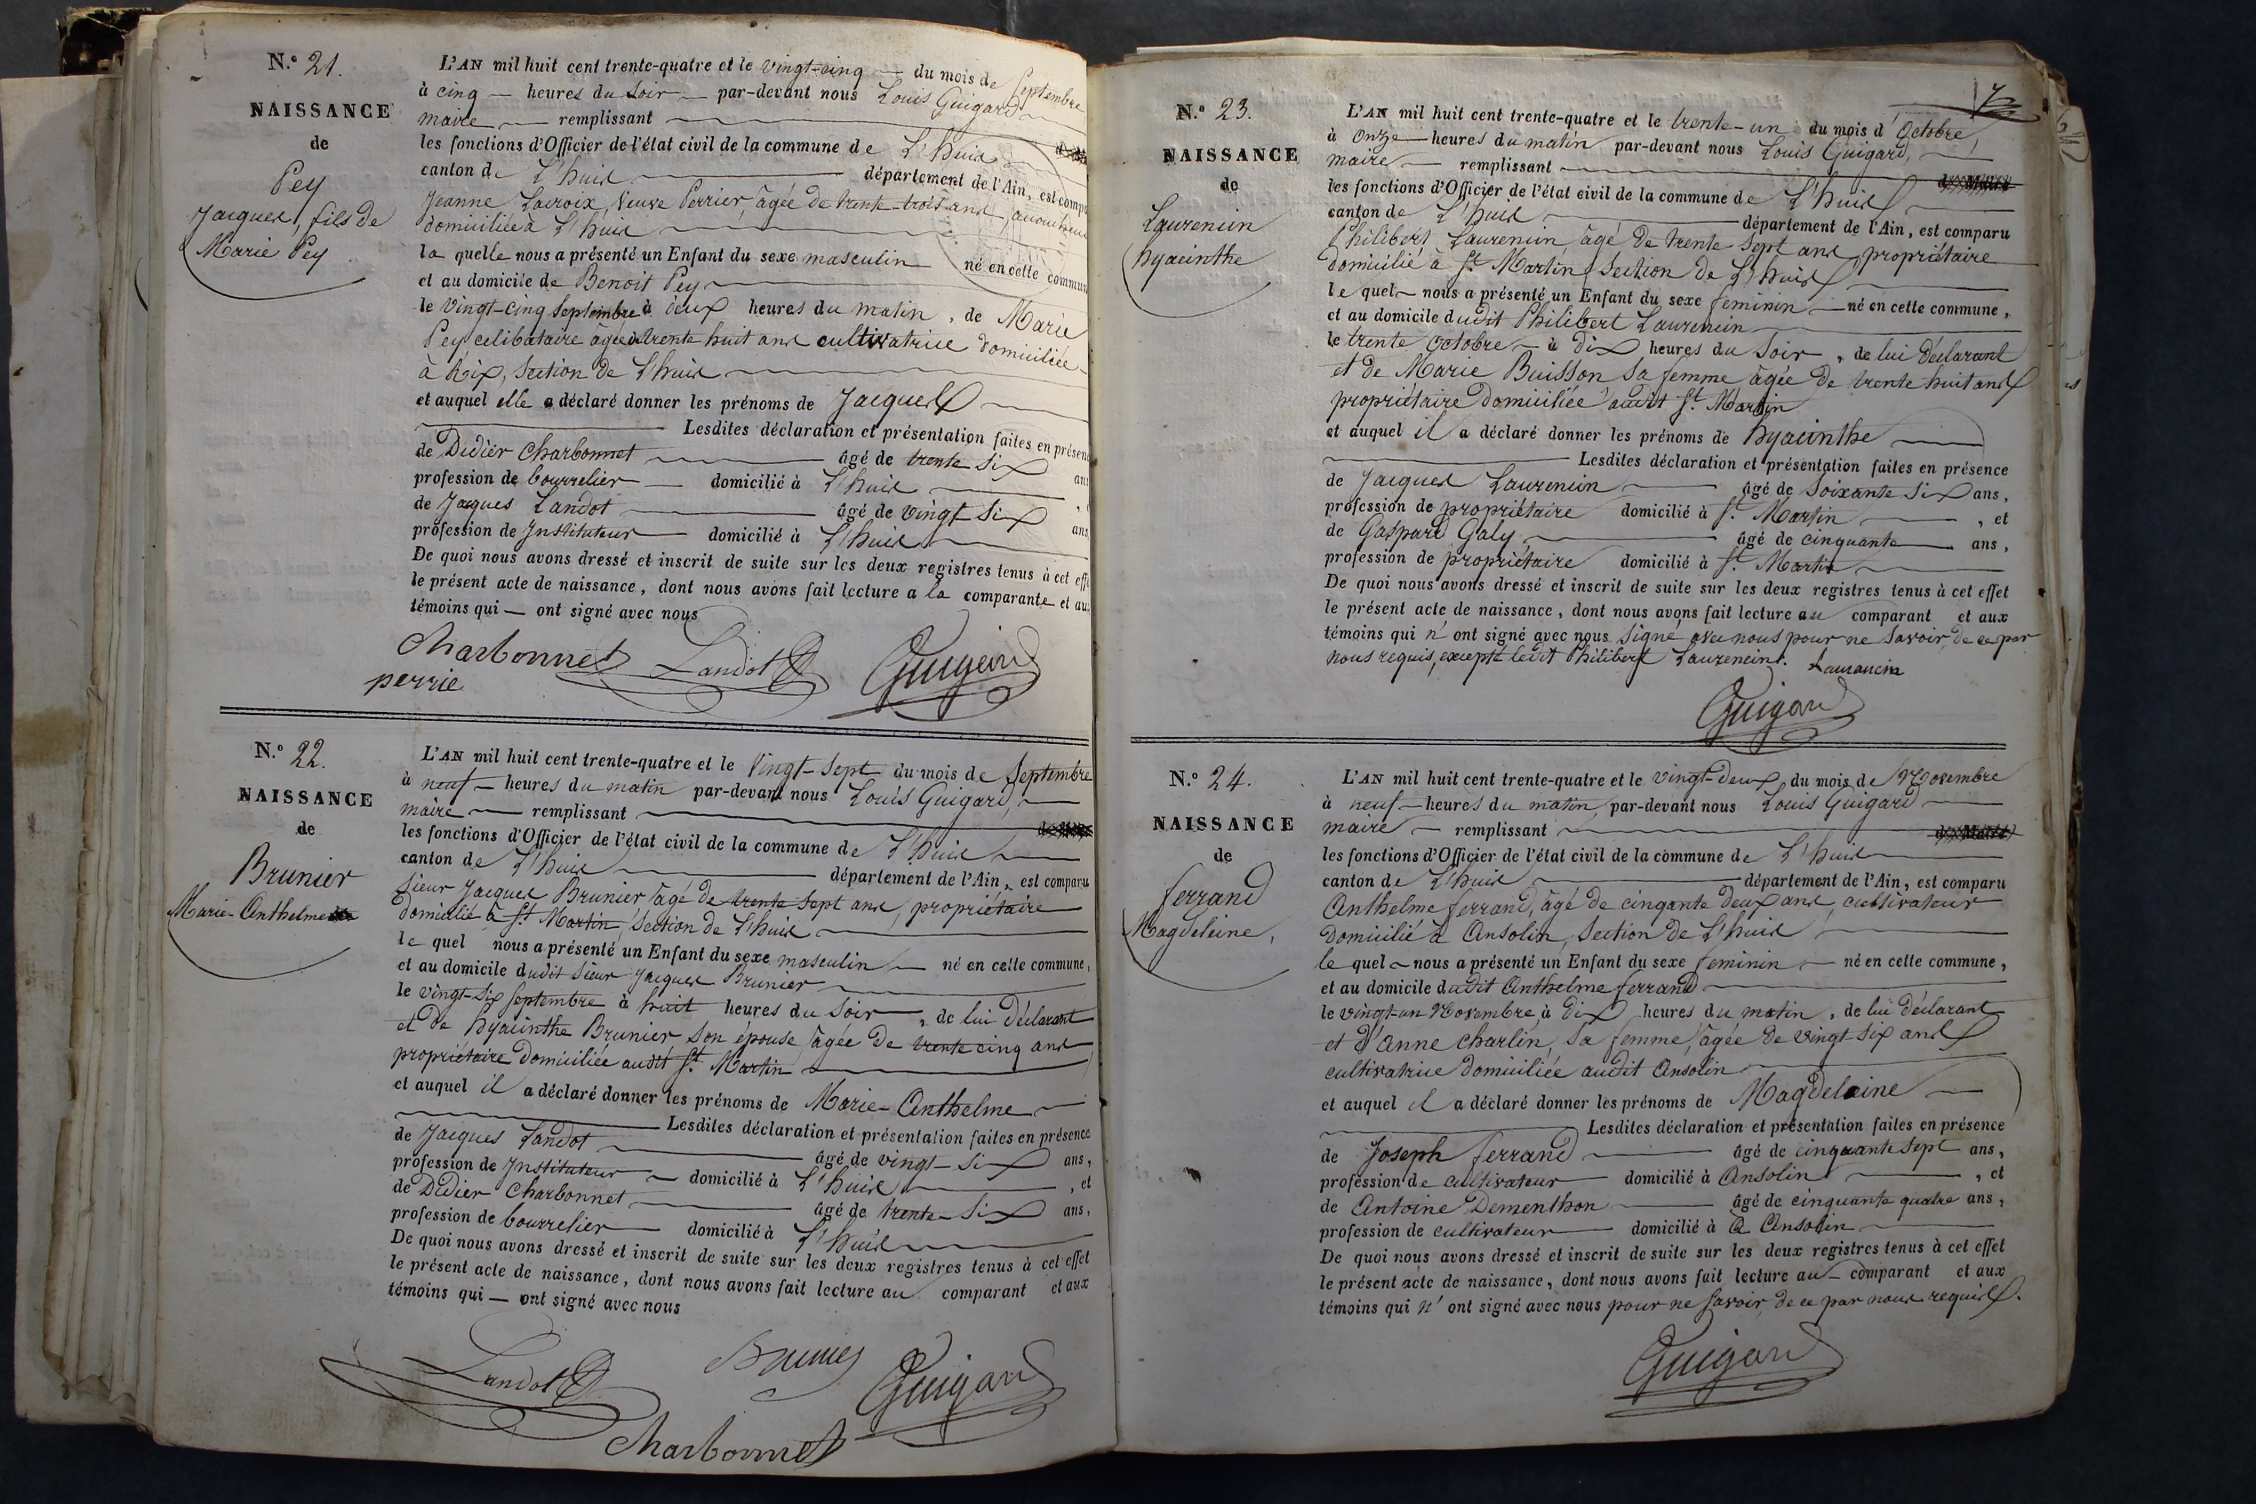 N.° 21.
NAISSANCE
de
Pey
Jacques, fils de
Marie Pey
L'AN mil huit cent trente-quatre et le vingt-cinq du mois de Septembre
à cinq heures du Soir par-devant nous Louis Guigard
maire remplissant
les fonctions d'Officier de l'état civil de la commune de L'huis
canton de L'huis département de l'Ain, est compa
Jeanne Lacroix, Veuve Perrier, âgée de trente-trois ans,
domiciliée à L'huis
la quelle nous a présenté un Enfant du sexe masculin né en cette commun
et au domicile de Benoit Pey
le vingt-cinq Septembre à deux heures du matin, de Marie
Pey celibataire âgée de trente huit ans cultivatrice domiciliée
à Rix, Section de L'huis
et auquel elle a déclaré donner les prénoms de Jacques
Lesdites déclaration et présentation faites en présen
de Didier Charbonnet âgé de trente Six ans
profession de bourrelier domicilié à L'huis
de Jacques Landot âgé de vingt Six ans
profession de Instituteur domicilié à L'huis
De quoi nous avons dressé et inscrit de suite sur les deux registres tenus à cet effe
le présent acte de naissance, dont nous avons fait lecture a la comparante et au
témoins qui — ont signé avec nous
Charbonnet Landot Guigard
perrie
N.° 22.
NAISSANCE
de
Brunier
Marie-Anthelme
L'AN mil huit cent trente-quatre et le Vingt-Sept du mois de Septembre
à neuf heures du matin par-devant nous Louis Guigard,
maire remplissant
les fonctions d'Officier de l'état civil de la commune de L'huis
canton de L'huis département de l'Ain, est comparu
Sieur Jacques Brunier âgé de trente Sept ans, propriétaire
domicilié à St. Martin, Section de L'huis
le quel nous a présenté un Enfant du sexe masculin né en cette commune,
et au domicile dudit Sieur Jacques Brunier
le vingt-Six Septembre à huit heures du Soir, de lui Déclarant
et de hyacinthe Brunier Son épouse, âgée de trente cinq ans
propriétaire domiciliée audit St. Martin
et auquel il a déclaré donner les prénoms de Marie-Anthelme
Lesdites déclaration et présentation faites en présence
de Jacques Landot âgé de vingt-Six ans,
profession de Instituteur domicilié à L'huis, et
de Didier Charbonnet âgé de trente-Six ans,
profession de bourrelier domicilié à L'huis
De quoi nous avons dressé et inscrit de suite sur les deux registres tenus à cet effet
le présent acte de naissance, dont nous avons fait lecture au comparant et aux
témoins qui — ont signé avec nous
Landot Brunier Guigard
Charbonnet
N.° 23.
NAISSANCE
de
Laurencin
hyacinthe
L'AN mil huit cent trente-quatre et le trente-un du mois d'Octobre,
à onze heures du matin par-devant nous Louis Guigard,
maire remplissant
les fonctions d'Officier de l'état civil de la commune de L'huis
canton de L'huis département de l'Ain, est comparu
Philibert Laurencin, âgé de trente Sept ans, propriétaire
domicilié à St. Martin, Section de L'huis
le quel nous a présenté un Enfant du sexe feminin né en cette commune,
et au domicile dudit Philibert Laurencin
le trente Octobre à dix heures du Soir, de lui déclarant
et de Marie Buisson Sa femme, âgée de trente huit ans
propriétaire domiciliée audit St. Martin
et auquel il a déclaré donner les prénoms de hyacinthe
Lesdites déclaration et présentation faites en présence
de Jacques Laurencin âgé de Soixante Six ans,
profession de propriétaire domicilié à St. Martin, et
de Gaspard Galy, âgé de cinquante ans,
profession de propriétaire domicilié à St. Martin
De quoi nous avons dressé et inscrit de suite sur les deux registres tenus à cet effet
le présent acte de naissance, dont nous avons fait lecture au comparant et aux
témoins qui n'ont signé avec nous Signé avec nous pour ne Savoir, de ce par
nous requis, excepté ledit Philibert Laurencin. Laurancin
Guigard
N.° 24.
NAISSANCE
de
ferrand
Magdeleine,
L'AN mil huit cent trente-quatre et le vingt-Deux du mois de Novembre
à neuf heures du matin, par-devant nous Louis Guigard
maire remplissant
les fonctions d'Officier de l'état civil de la commune de L'huis
canton de L'huis département de l'Ain, est comparu
Anthelme ferrand, âgé de cinqante deux ans, cultivateur
domicilié à Ansolin, Section de L'huis
le quel nous a présenté un Enfant du sexe feminin né en cette commune,
et au domicile dudit Anthelme ferrand
le vingt-un Novembre, à dix heures du matin, de lui déclarant
et D'anne Charlin, Sa femme, âgée de vingt Six ans
cultivatrice domiciliée audit Ansolin
et auquel il a déclaré donner les prénoms de Magdelaine
Lesdites déclaration et présentation faites en présence
de Joseph ferrand âgé de cinquante Sept ans,
profession de cultivateur domicilié à Ansolin, et
de Antoine Dementhon âgé de cinquante quatre ans,
profession de cultivateur domicilié à à Ansolin
De quoi nous avons dressé et inscrit de suite sur les deux registres tenus à cet effet
le présent acte de naissance, dont nous avons fait lecture au comparant et aux
témoins qui n'ont signé avec nous pour ne Savoir, de ce par nous requis.
Guigard